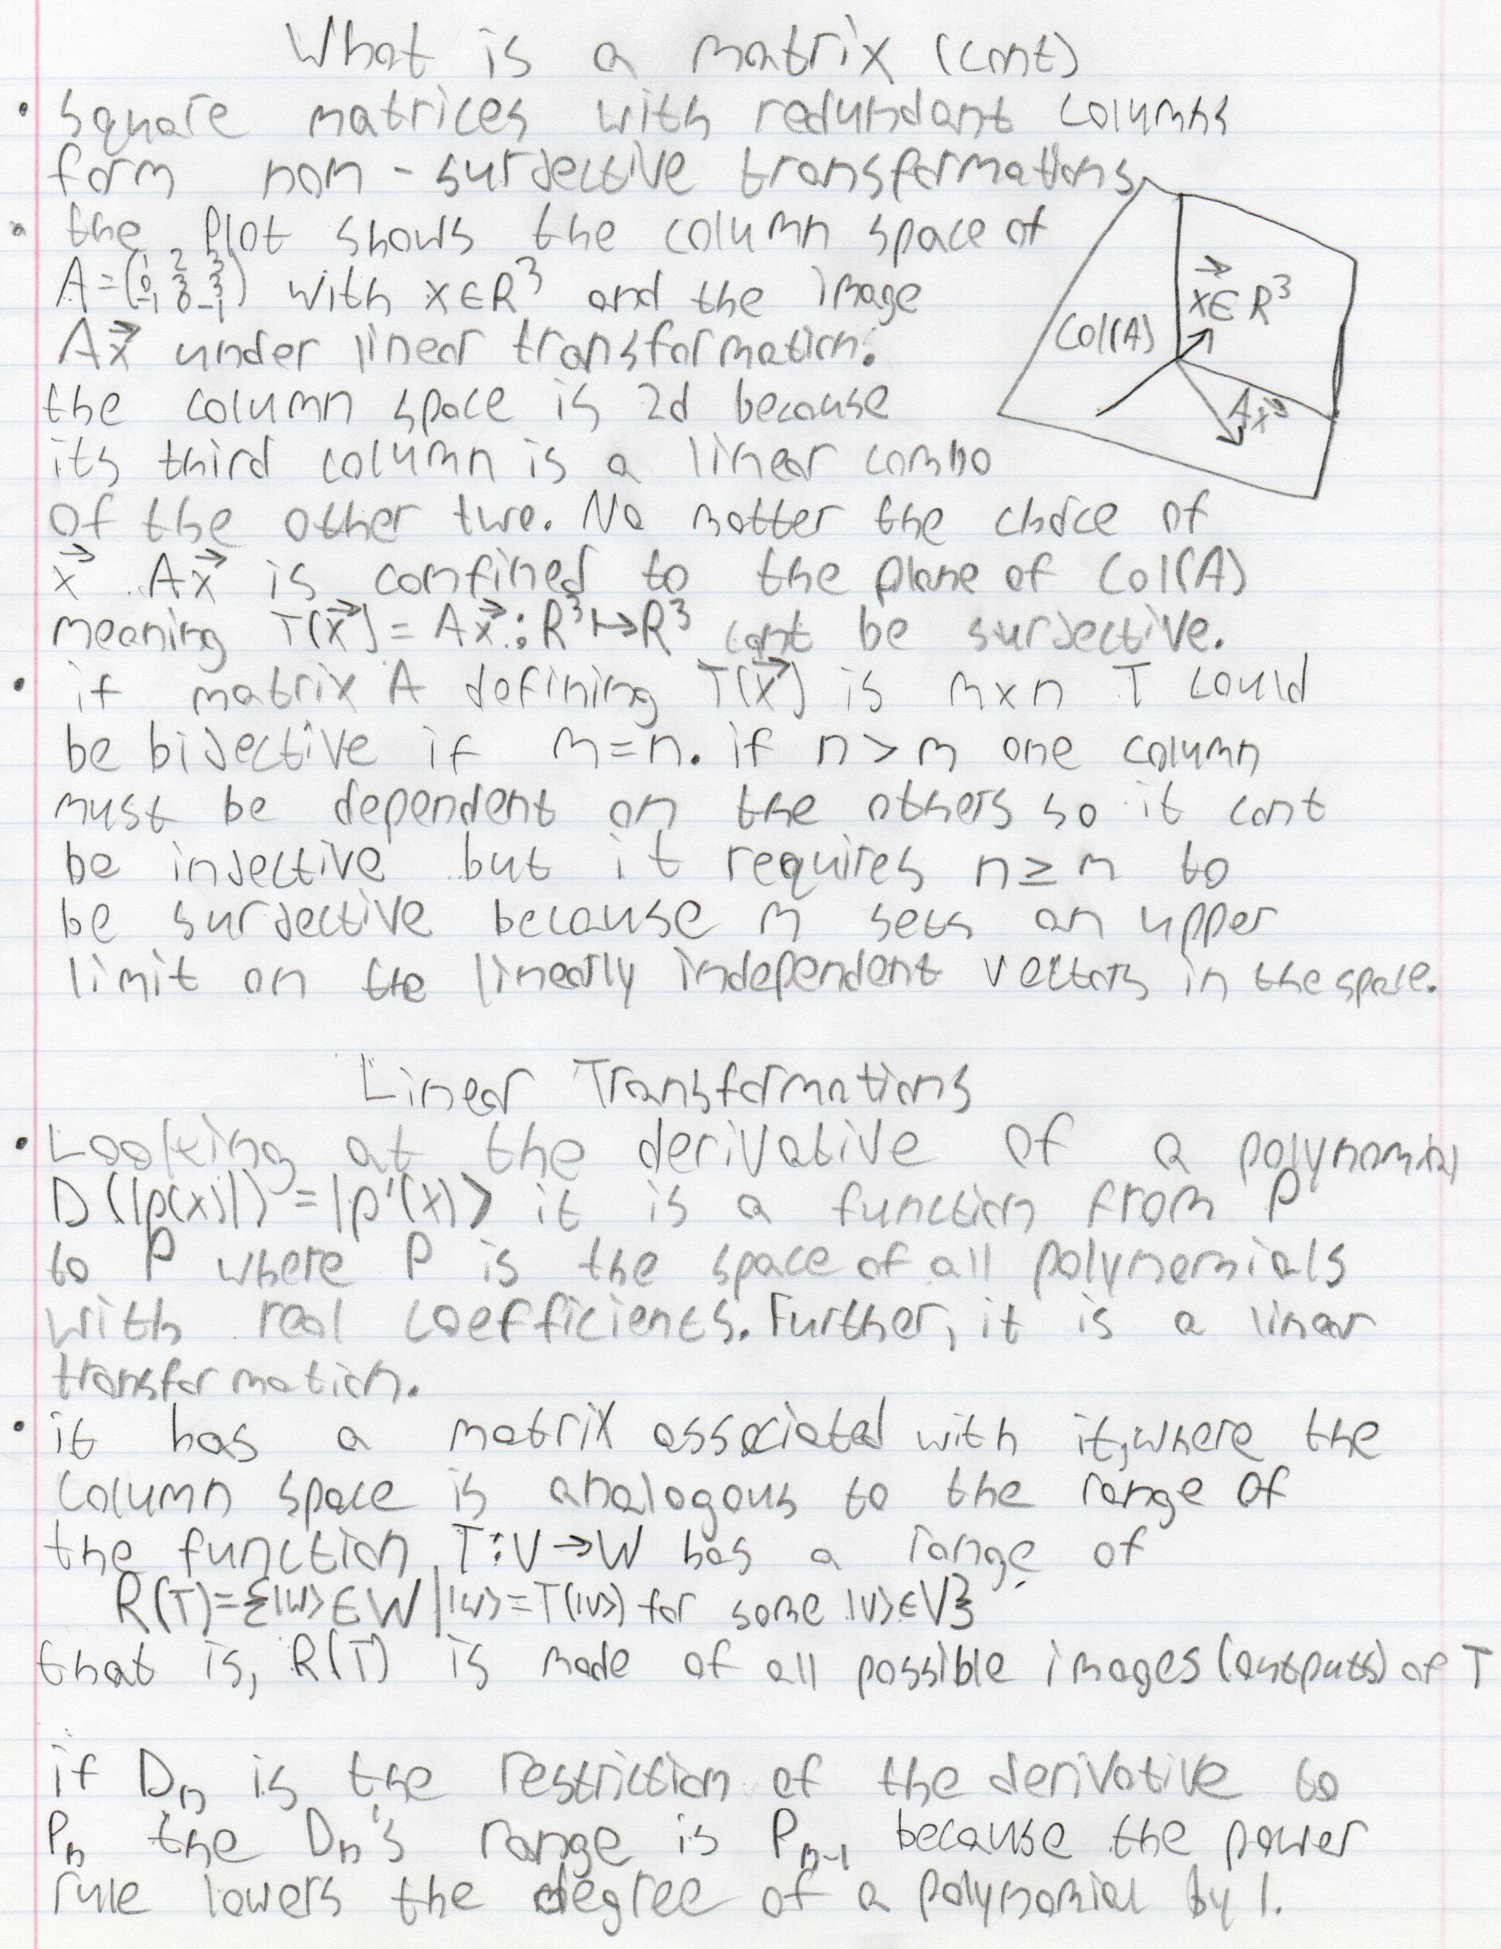 What is a matrix (cont)
• Square matrices with redundant columns
form non-surjective transformations
• the plot shows the column space of
A = (1 2 3; 0 3 3; -1 0 -1) with x∈R³ and the image
Ax⃗ under linear transformation.
the column space is 2d because
its third column is a linear combo
of the other two. No matter the choice of
x⃗ Ax⃗ is confined to the plane of Col(A)
meaning T(x⃗) = Ax⃗ : R³↦R³ cant be surjective.
Col(A)
x⃗∈R³
Ax⃗
• if matrix A defining T(x⃗) is m×n T could
be bijective if m=n. if n>m one column
must be dependent on the others so it cant
be injective but it requires n≥m to
be surjective because m sets an upper
limit on the linearly independent vectors in the space.
Linear Transformations
• Looking at the derivative of a polynomial
D(|p(x)|) = |p'(x)⟩ it is a function from P
to P where P is the space of all polynomials
with real coefficients. Further, it is a linear
transformation.
• it has a matrix associated with it, where the
column space is analogous to the range of
the function. T:V→W has a range of
R(T)={|w⟩∈W | |w⟩=T(|v⟩) for some |v⟩∈V}
that is, R(T) is made of all possible images (outputs) of T
if Dₙ is the restriction of the derivative to
Pₙ the Dₙ's range is Pₙ₋₁ because the power
rule lowers the degree of a polynomial by 1.